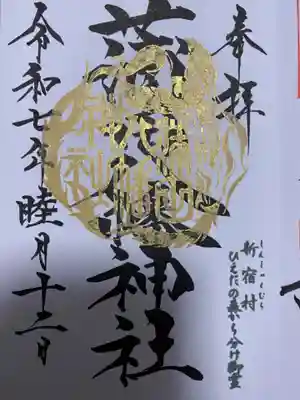 奉拝
しんしゅくむら
新宿村
ひえだの森から分け御霊
蒲田八幡神社
令和七年睦月十二日